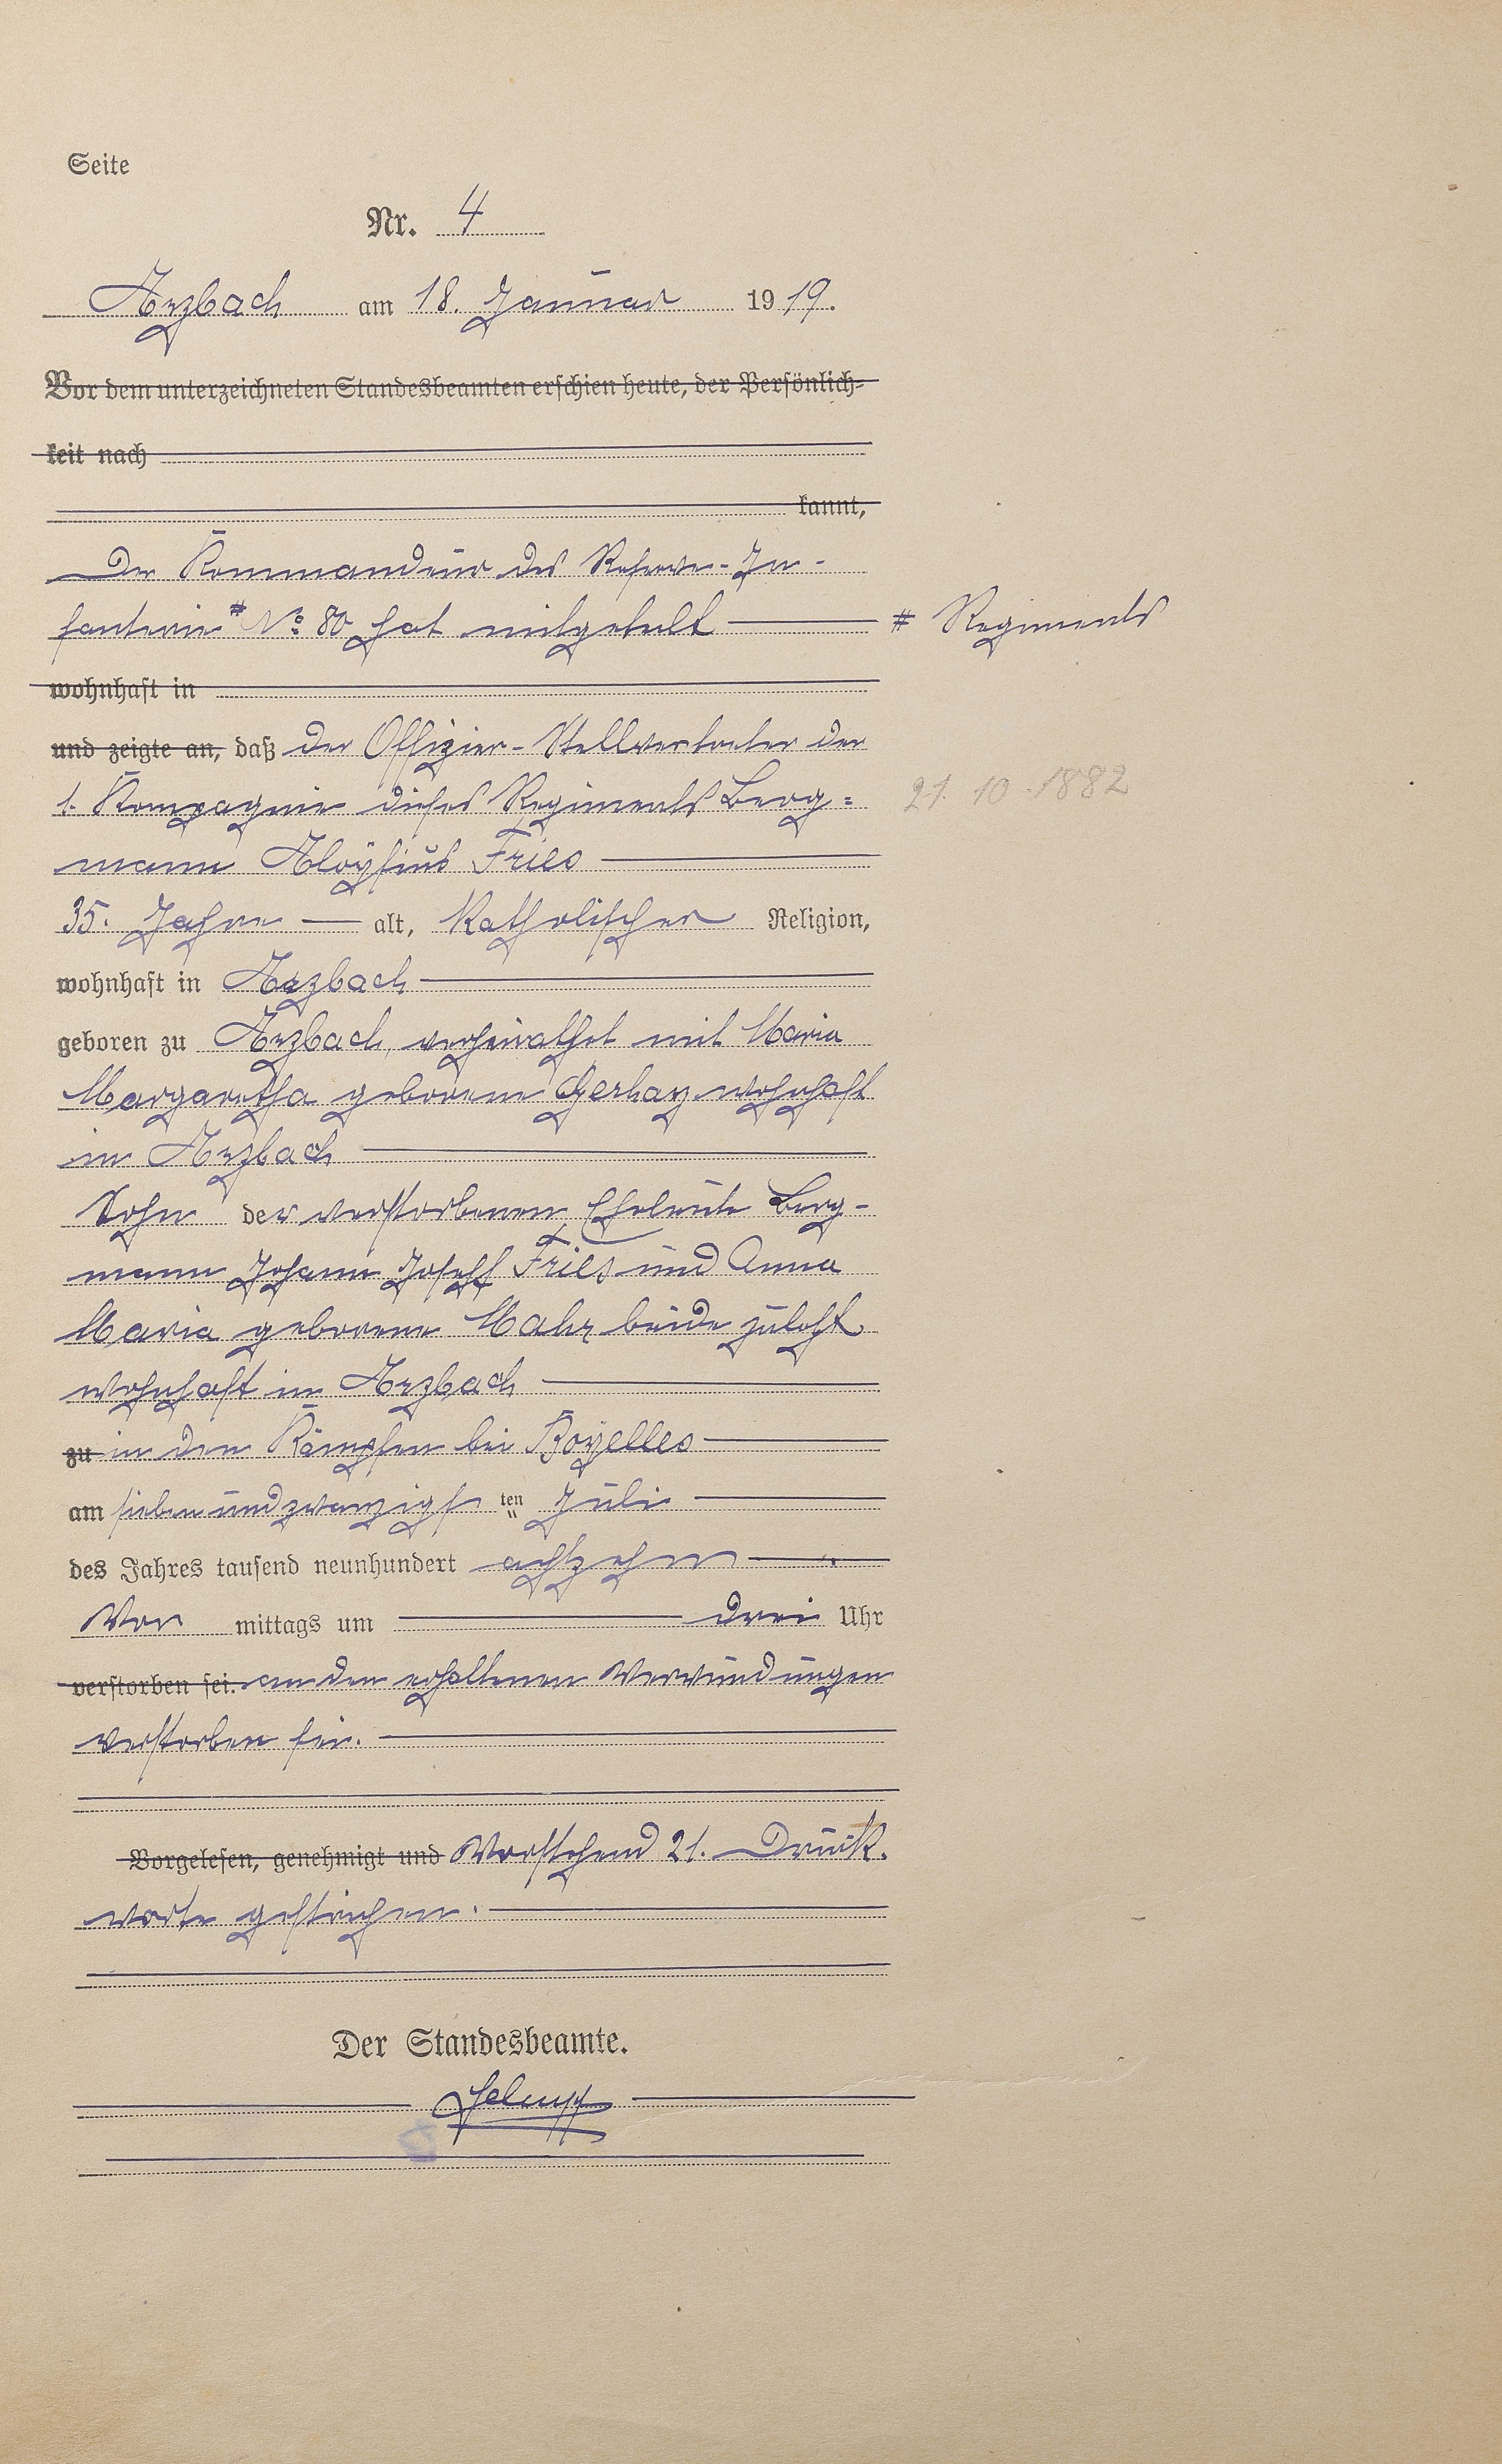 Seite
Nr. 4
Arzbach am 18. Januar 1919.
Vor dem unterzeichneten Standesbeamten erschien heute, der Persönlich-
keit nach
kannt,
Der Kommandeur des Reserve-In-
fanterie # No 80 hat mitgeteilt
# Regiments
wohnhaft in
und zeigte an, daß der Offizier-Stellvertreter der
1. Kompagnie dieses Regiments Berg=
21. 10. 1882
mann Aloÿsius Fries
35. Jahre alt, Katholischer Religion,
wohnhaft in Arzbach
geboren zu Arzbach, verheirathet mit Maria
Margaretha geborene Gerhaz wohnhaft
in Arzbach
Sohn der verstorbenen Eheleute Berg-
mann Johann Joseph Fries und Anna
Maria geborene Mahr beide zuletzt
wohnhaft in Arzbach
zu in den Kämpfen bei Boyelles
am siebenundzwanzigsten Juli
des Jahres tausend neunhundert achtzehn
Vor mittags um drei Uhr
verstorben sei. an den erhaltenen Verwundungen
verstorben sei.
Vorgelesen, genehmigt und Vorstehend 21. Druck-
worte gestrichen.
Der Standesbeamte.